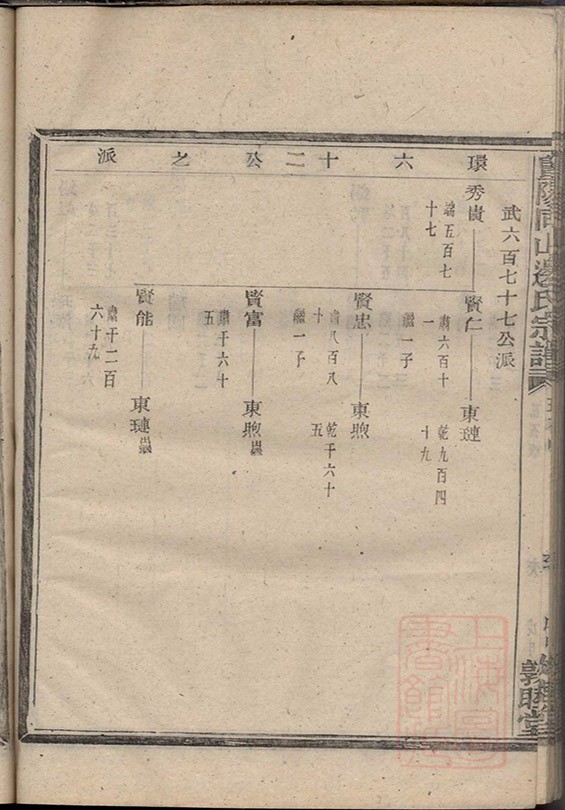 環六十二公之派
武六百七十七公派
秀貴
端五百七
十七
賢仁
肅六百十
一
繼一子
東璉
乾九百四
十九
賢忠
肅八百八
十
繼一子
東煦
乾千六十
五
賢富
肅千六十
五
東煦
賢能
肅千二百
六十九
東璉
暨陽同山邊氏宗譜
敦睦堂
上海圖
書館藏